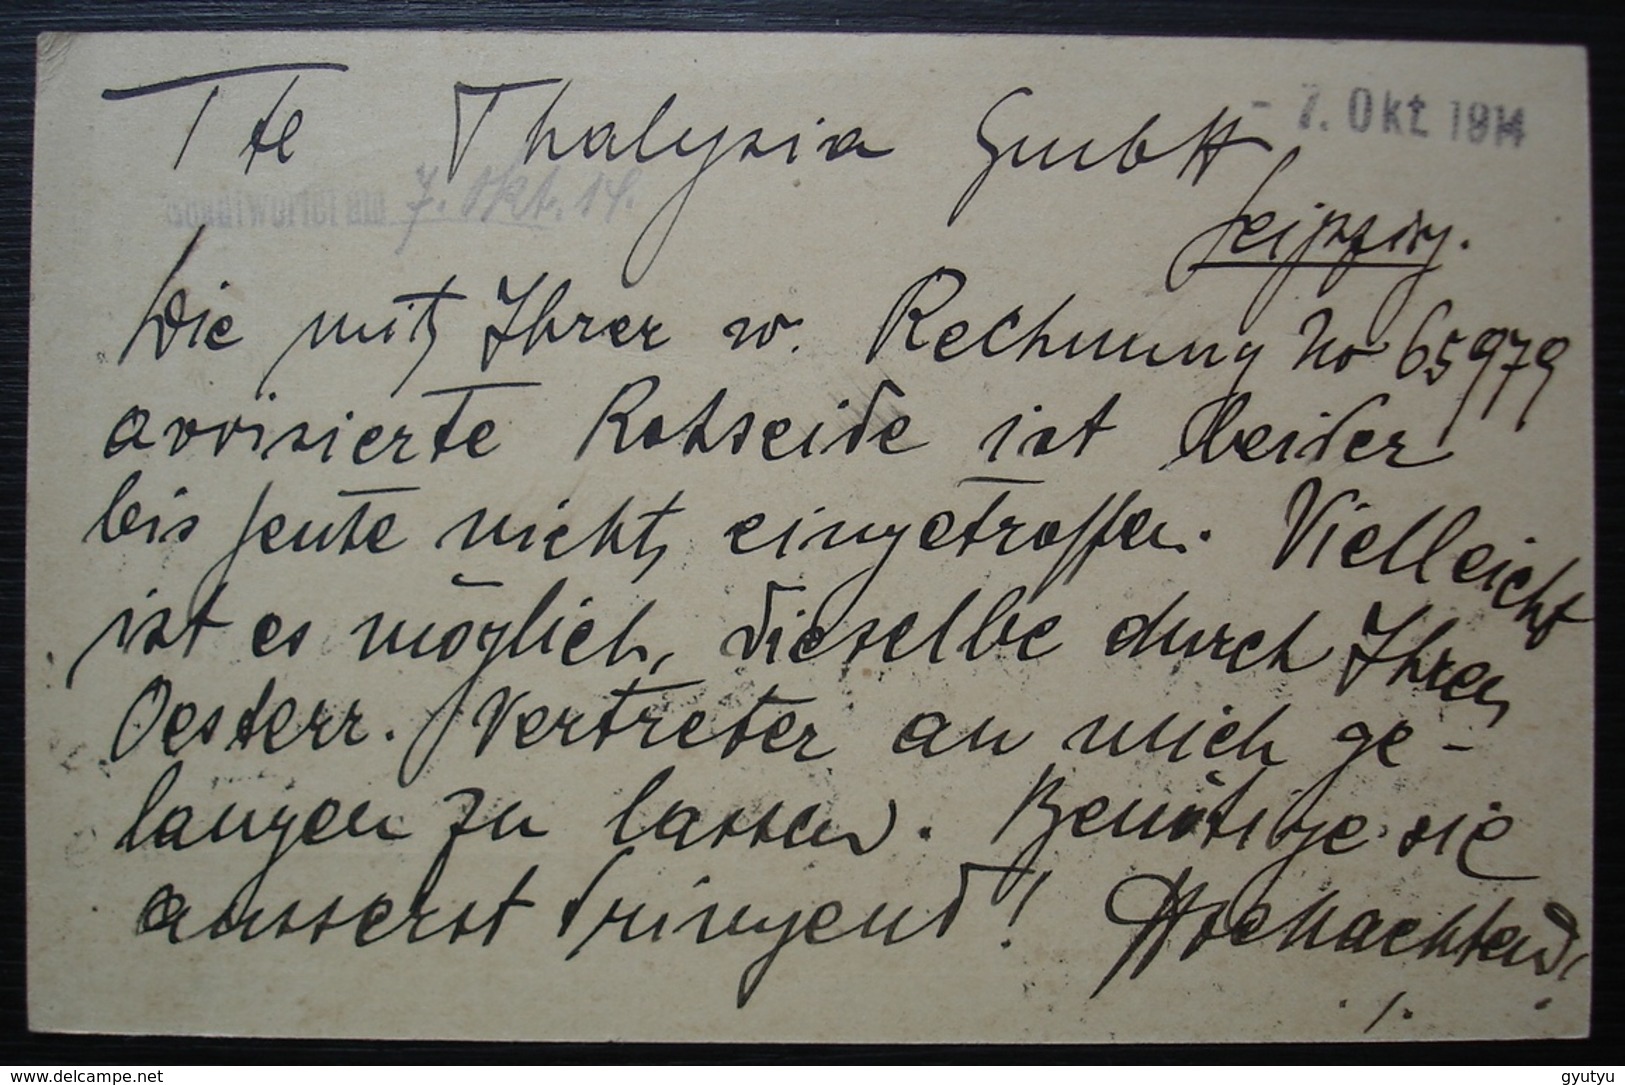 Tte Thalysia GmbH
- 7. Okt. 1914
Beantwortet am 7. Okt. 14.
Leipzig.
Die mit Ihrer w. Rechnung No 65979
avvisierte Rohseide ist leider
bis heute nicht eingetroffen. Vielleicht
ist es möglich, dieselbe durch Ihren
Oesterr. Vertreter an mich ge-
langen zu lassen. Benötige sie
äusserst dringend! Hochachtend
delcampe.net
gyutyu